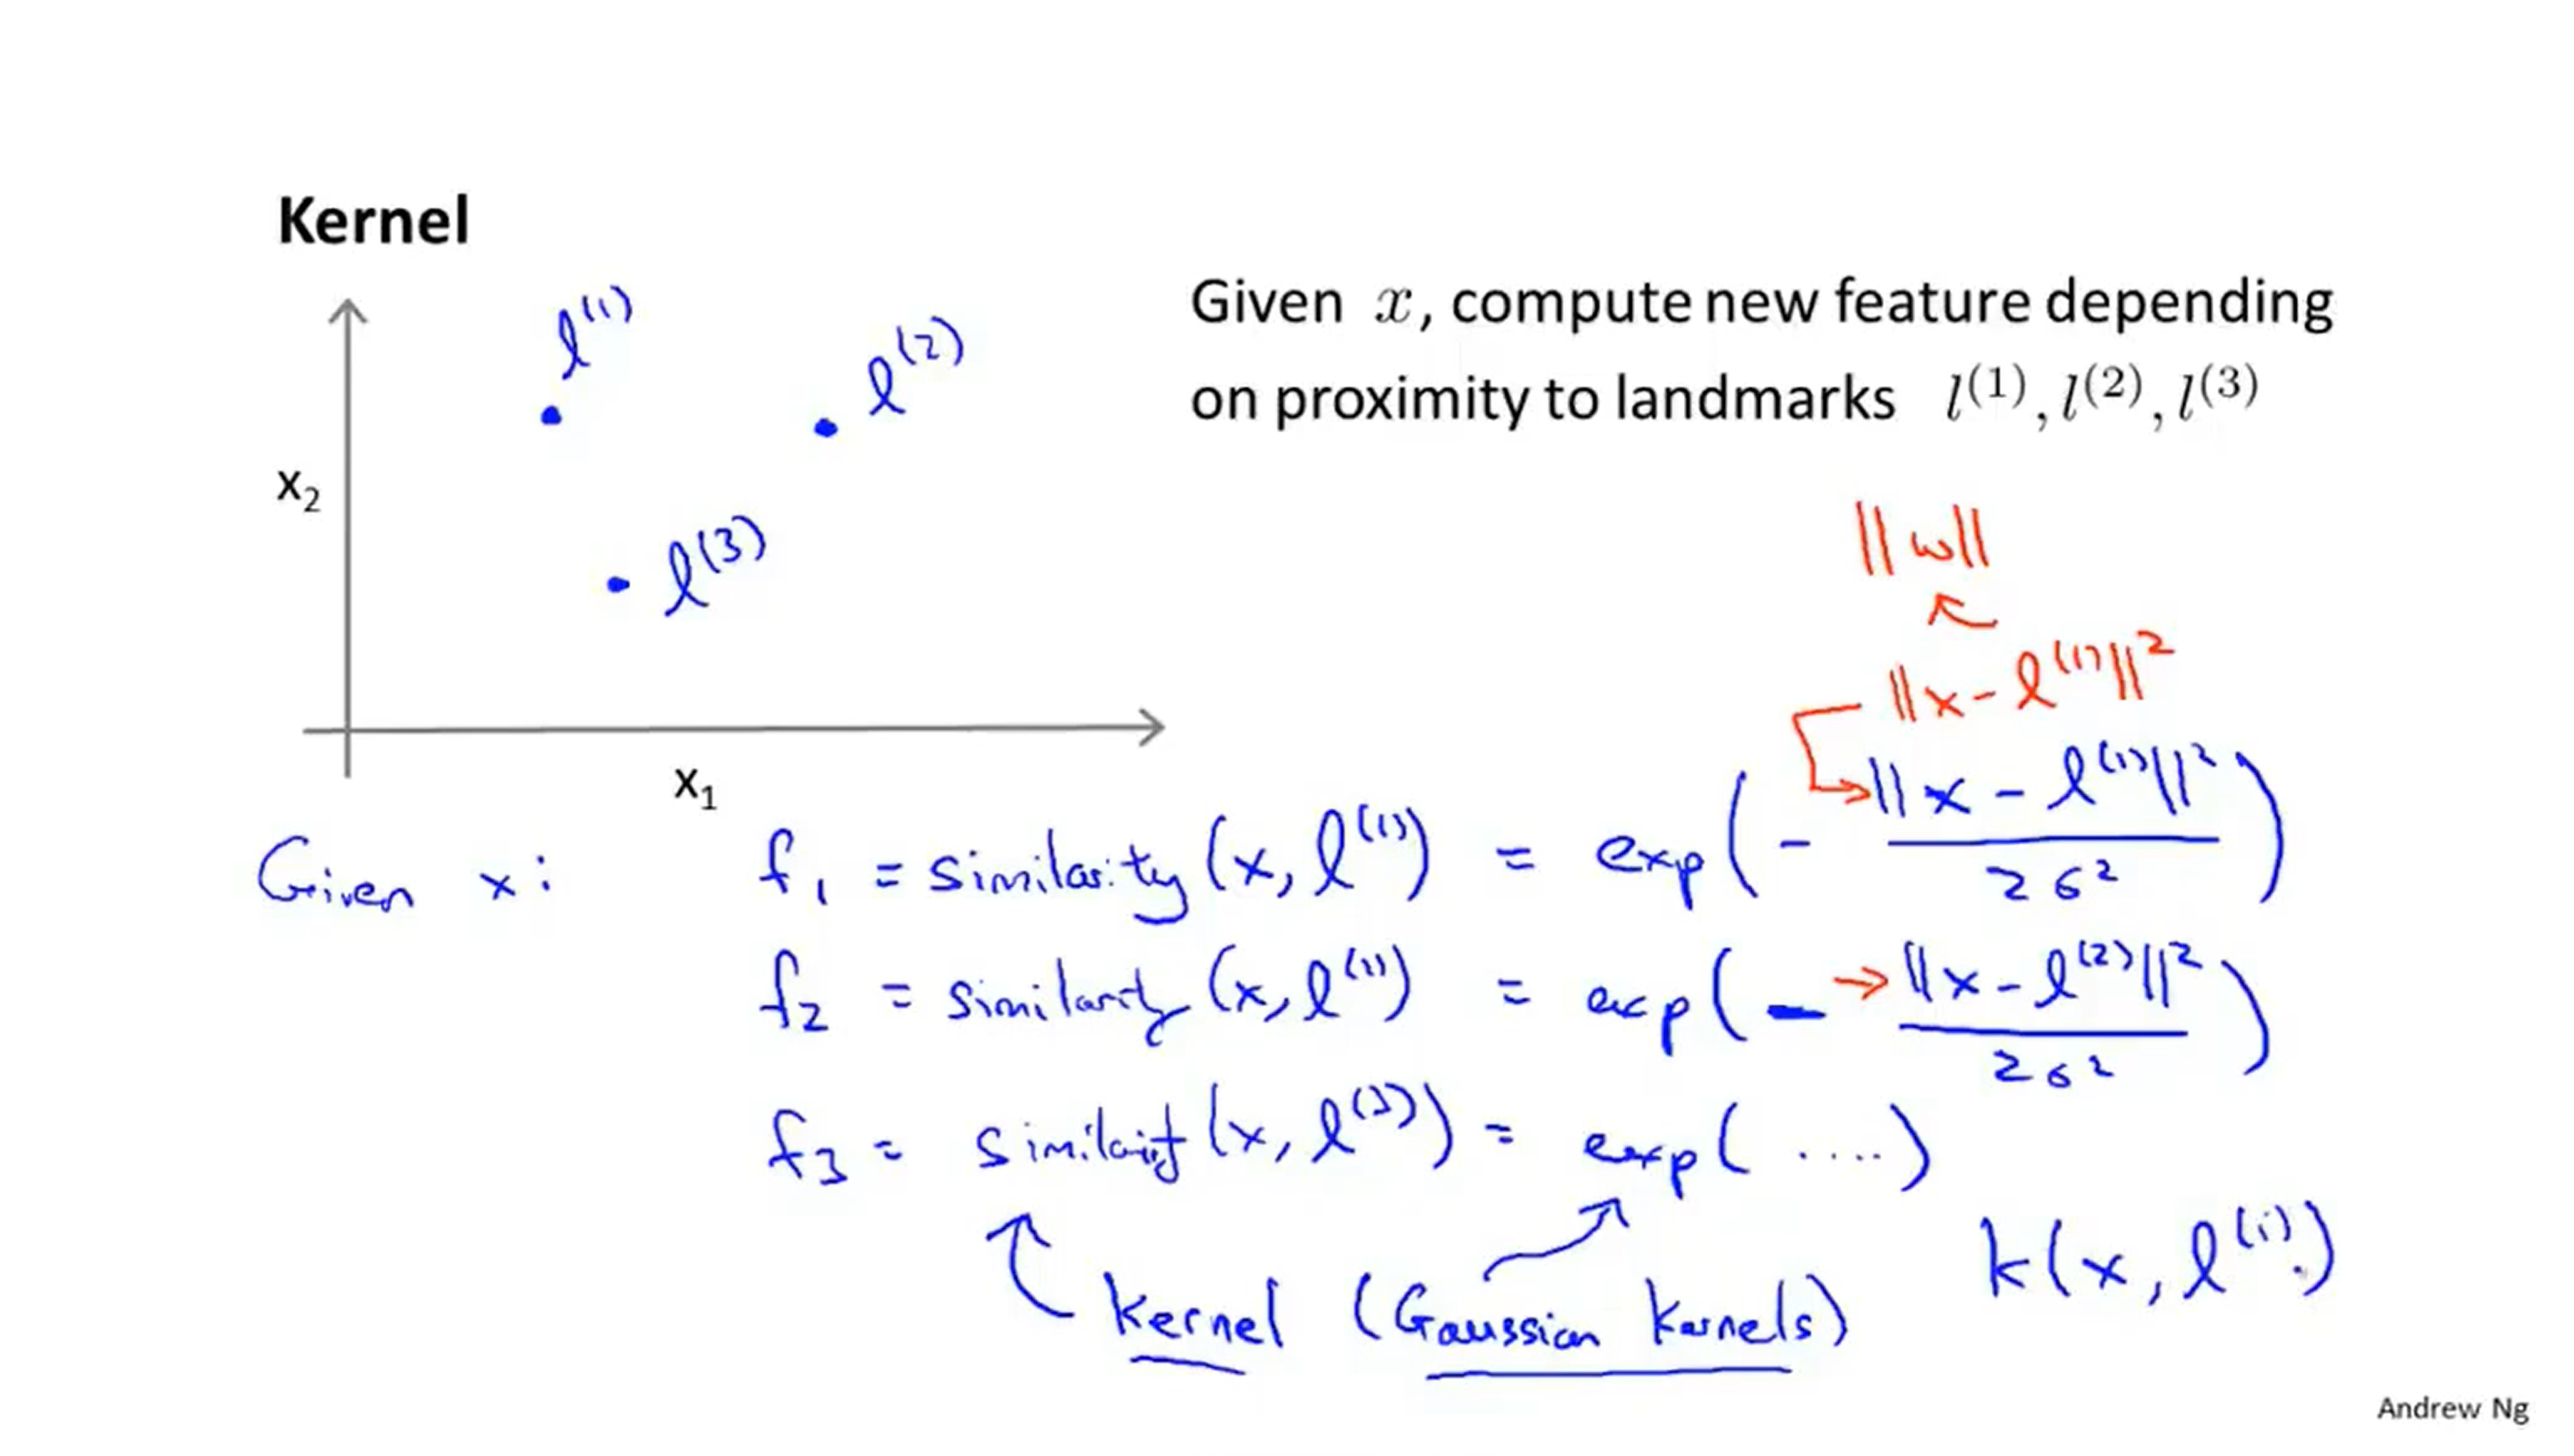 Kernel
l^(1)
l^(2)
l^(3)
x₂
x₁
Given x, compute new feature depending
on proximity to landmarks l^(1), l^(2), l^(3)
||w||
||x - l^(1)||²
Given x: f₁ = similarity(x, l^(1)) = exp(- ||x - l^(1)||² / 2σ²)
f₂ = similarity(x, l^(1)) = exp(- ||x - l^(2)||² / 2σ²)
f₃ = similarity(x, l^(3)) = exp(....)
kernel (Gaussian kernels) k(x, l^(i))
Andrew Ng